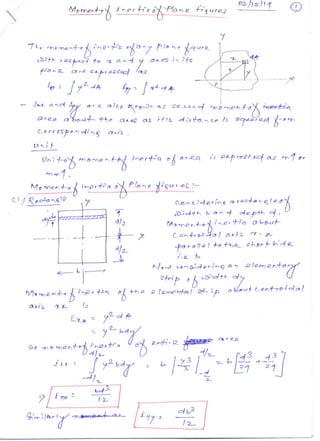 02/12/19 ①
Moment of inertia of Plane figures
The moment of inertia of any Plane figure
with respect to x and y axes in its
plane are expressed as
Ix = ∫y² dA Iy = ∫x² dA
Ix and Iy are also known as second moment of inertia
area about the axes as it is distance is squared from
corresponding axis.
Unit
Unit of moment of inertia of area is expressed as m⁴ or
mm⁴.
Moment of inertia of Plane figures:-
(1) Rectangle
y
dA
x
y
x
d/2
d/2
b
Considering a rectangle of
width b and depth d.
Moment of inertia about
centroidal axis x-x
parallel to the short side
i.e b
Now considering an elementary
strip of width dy
Moment of inertia of the elemental strip about centroidal
axis xx is
Ixx = y² dA
= y² bdy
So moment of inertia of entire area
Ixx = ∫ y² bdy = b [y³/3] = b [d³/24 + d³/24]
d/2
-d/2
Ixx = bd³/12
Similarly
Iyy = db³/12